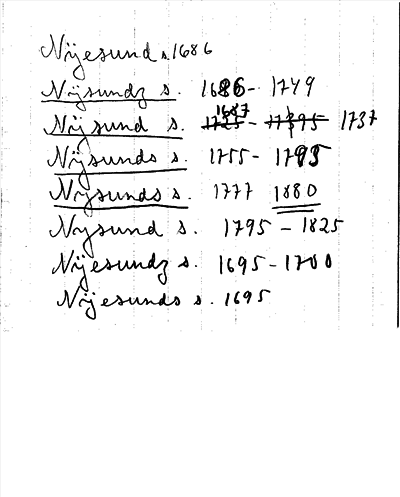 Nÿesund s. 1686
Nÿsundz s. 1686 - 1749
Nÿsund s. 1687 - 1737
Nÿsunds s. 1755 - 1795
Nÿsunds s. 1777 1880
Nysund s. 1795 - 1825
Nÿesundz s. 1695 - 1700
Nÿesunds s. 1695